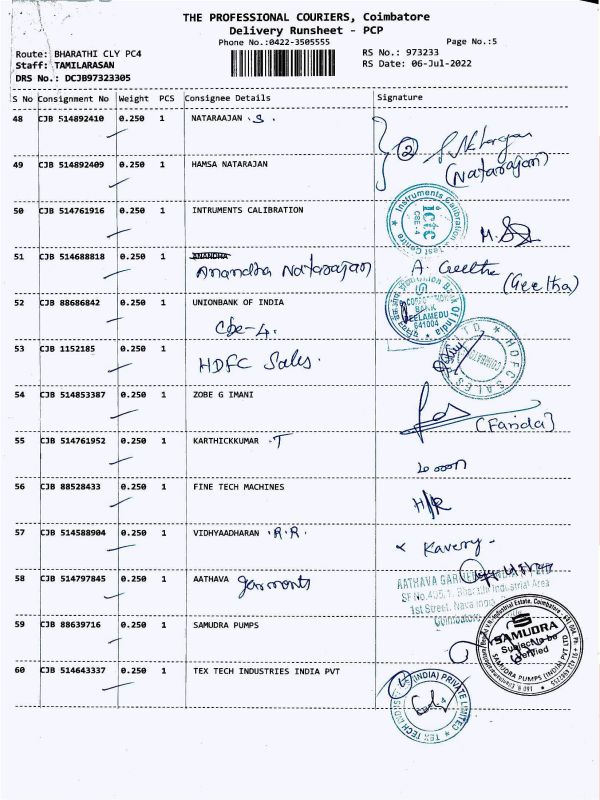 THE PROFESSIONAL COURIERS, Coimbatore
Delivery Runsheet - PCP
Phone No.:0422-3505555
Page No.:5
Route: BHARATHI CLY PC4
RS No.: 973233
Staff: TAMILARASAN
RS Date: 06-Jul-2022
DRS No.: DCJB97323305
S No Consignment No Weight PCS Consignee Details Signature
48 CJB 514892410 0.250 1 NATARAAJAN .S.
2
(Natarajan)
49 CJB 514892409 0.250 1 HAMSA NATARAJAN
50 CJB 514761916 0.250 1 INTRUMENTS CALIBRATION
Instruments Calibration Test Centre
ICTC
CBE-4
51 CJB 514688818 0.250 1 ANANDHA
Anandha Natarajan
A. Geetha
(Geetha)
52 CJB 88686842 0.250 1 UNIONBANK OF INDIA
Cbe-4.
Union Bank Of India
CORPORATION
BANK
PEELAMEDU
641004
53 CJB 1152185 0.250 1
HDFC Sales.
HDFC SALES
COIMBATORE
54 CJB 514853387 0.250 1 ZOBE G IMANI
(Farida)
55 CJB 514761952 0.250 1 KARTHICKKUMAR .T
56 CJB 88528433 0.250 1 FINE TECH MACHINES
57 CJB 514588904 0.250 1 VIDHYAADHARAN .R.R.
Kavery
58 CJB 514797845 0.250 1 AATHAVA garments
AATHAVA GARMENTS INDIA P LTD
SF No.405/1, Bharathi Industrial Area
1st Street, Nava India
Coimbatore
59 CJB 88639716 0.250 1 SAMUDRA PUMPS
SAMUDRA
Subject to be
Verified
SAMUDRA PUMPS (INDIA) PVT LTD
60 CJB 514643337 0.250 1 TEX TECH INDUSTRIES INDIA PVT
TEX TECH INDUSTRIES (INDIA) PRIVATE LIMITED